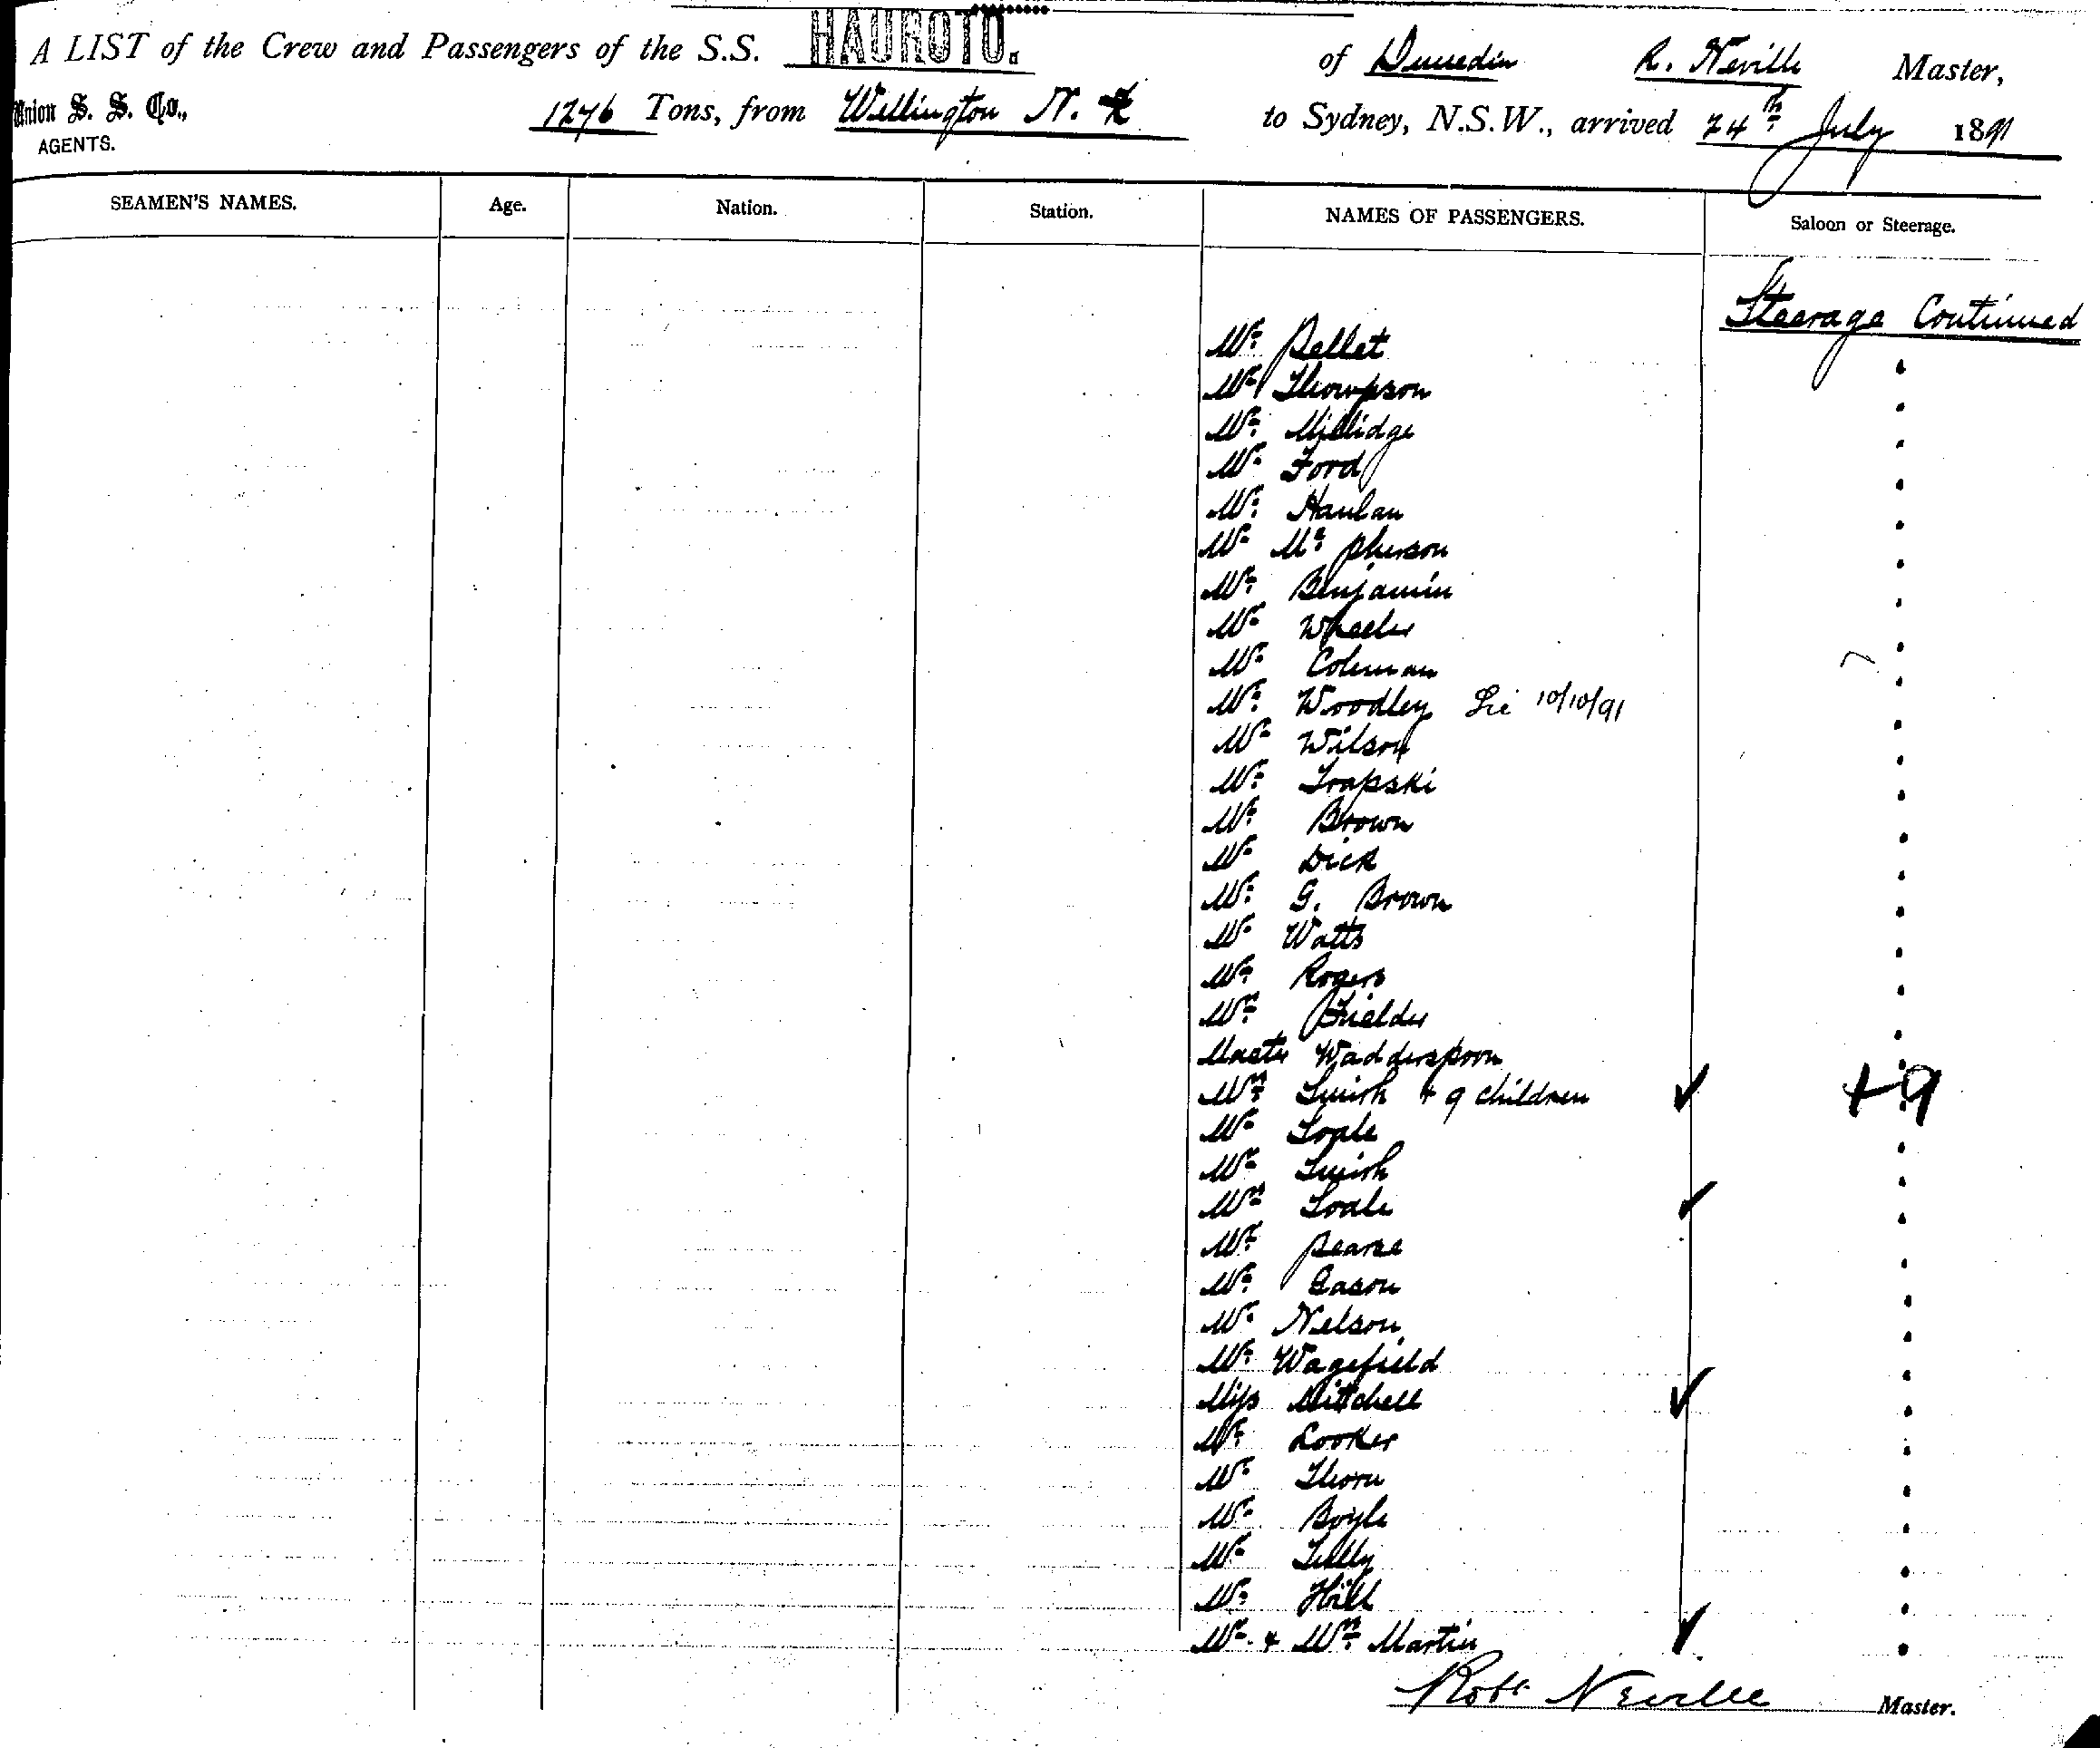 A LIST of the Crew and Passengers of the S.S. HAUROTO. of Dunedin R. Neville Master,
Union S. S. Co., AGENTS. 1276 Tons, from Wellington N. Z to Sydney, N.S.W., arrived 24th July 1891
SEAMEN'S NAMES. Age. Nation. Station. NAMES OF PASSENGERS. Saloon or Steerage.
Steerage Continued
Mr Pellet
Mr Thompson
Mr Millidge
Mr Ford
Mr Hanlan
Mr Mc pherson
Mr Benjamin
Mr Wheeler
Mr Coleman
Mr Woodley 10/10/91
Mr Wilson
Mr Trapski
Mr Brown
Mr Dick
Mr G. Brown
Mr Watts
Mr Rogers
Mr Fielder
Master Wadderspoon
Mrs + 9 children ✓ +9
Mr
Mr
Mrs ✓
Mr Pearce
Mr Eason
Mr Nelson
Mr Wagefield
Miss Mitchell ✓
Mr Looker
Mr Thorn
Mr Boyle
Mr Tully
Mr Hill
Mr & Mrs Martin ✓
Robt Neville Master.